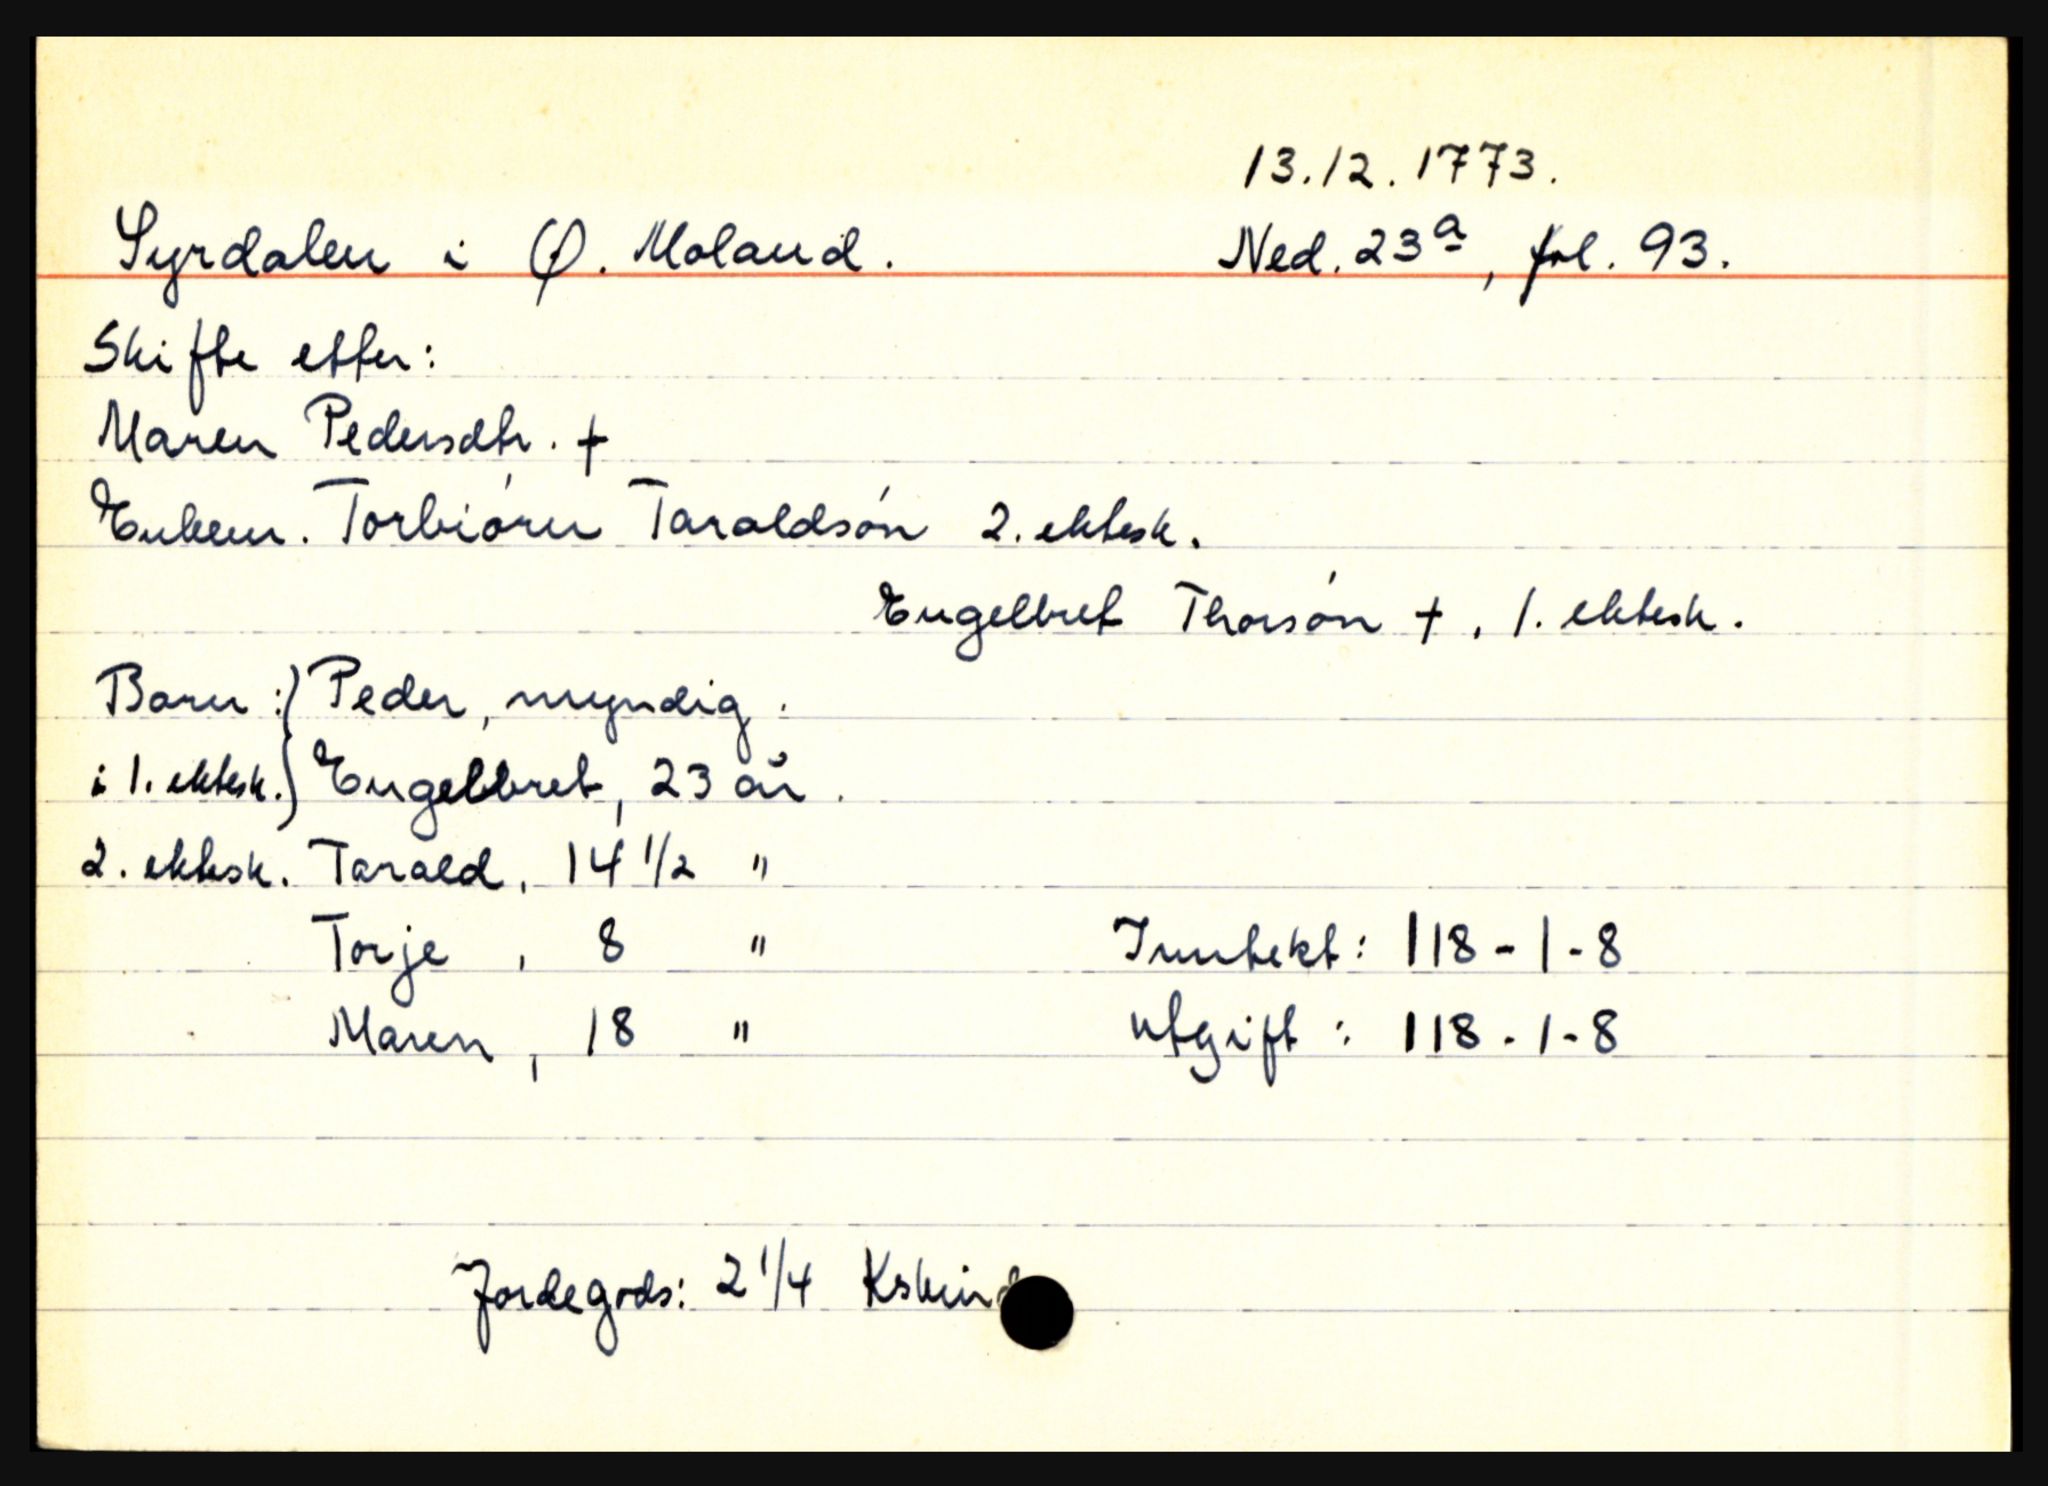 13.12.1773.
Syrdalen i Ø. Moland. Ned. 23a, fol. 93.
Skifte etter:
Maren Pedersdtr. +
Enkem. Torbiórn Taraldsón 2. ektesk.
Engelbret Thorsón +, 1. ektesk.
Barn: } Peder, myndig.
i 1. ektesk. } Engelbret, 23 år.
2. ektesk. Tarald, 14 1/2 "
Torje, 8 " Inntekt: 118-1-8
Maren, 18 " utgift: 118-1-8
Jordegods: 2 1/4 Kskind